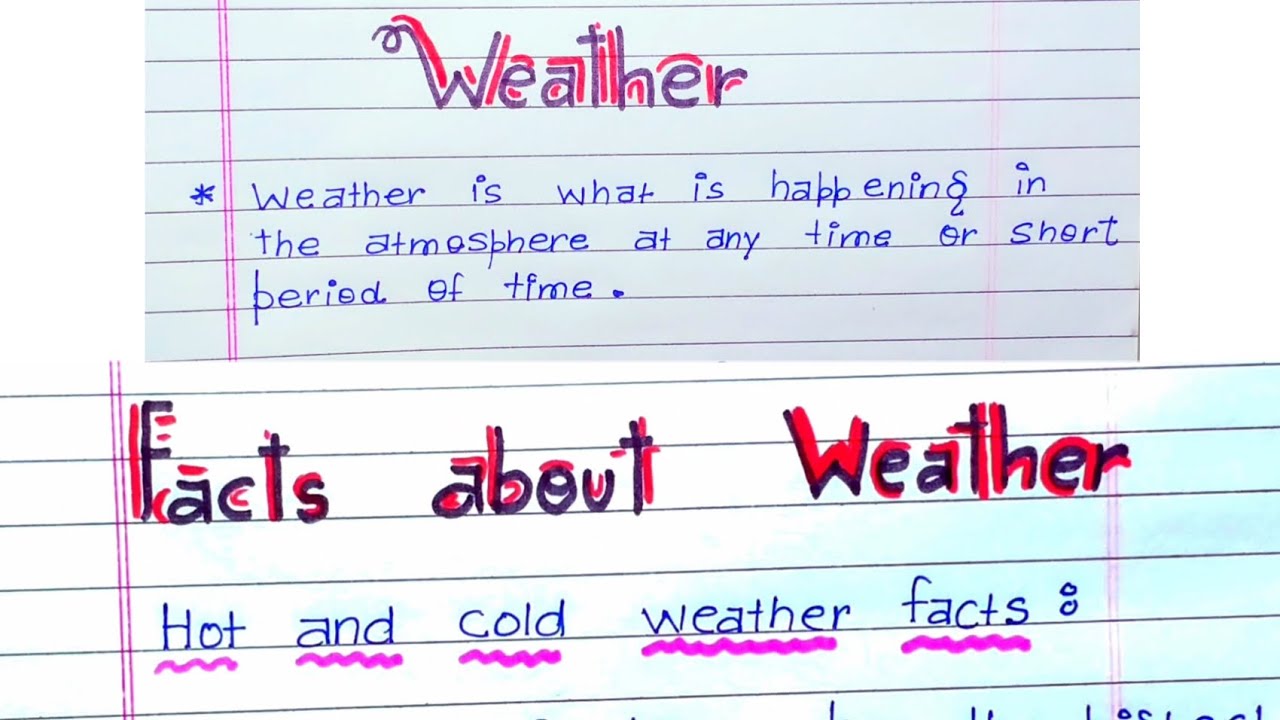 Weather
* Weather is what is happening in
the atmosphere at any time or short
period of time.
Facts about Weather
Hot and cold weather facts: